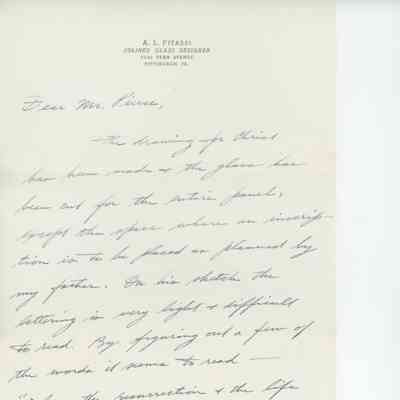 A. L. PITASSI
STAINED GLASS DESIGNER
PENN AVENUE
PITTSBURGH, PA.
Dear Mr. Pierce,
The drawing of Christ
has been made & the glass has
been cut for the entire panel,
except the space where an inscrip-
tion is to be placed as planned by
my father. On his sketch the
lettering is very light & difficult
to read. By figuring out a few of
the words it seems to read —
the resurrection & the life